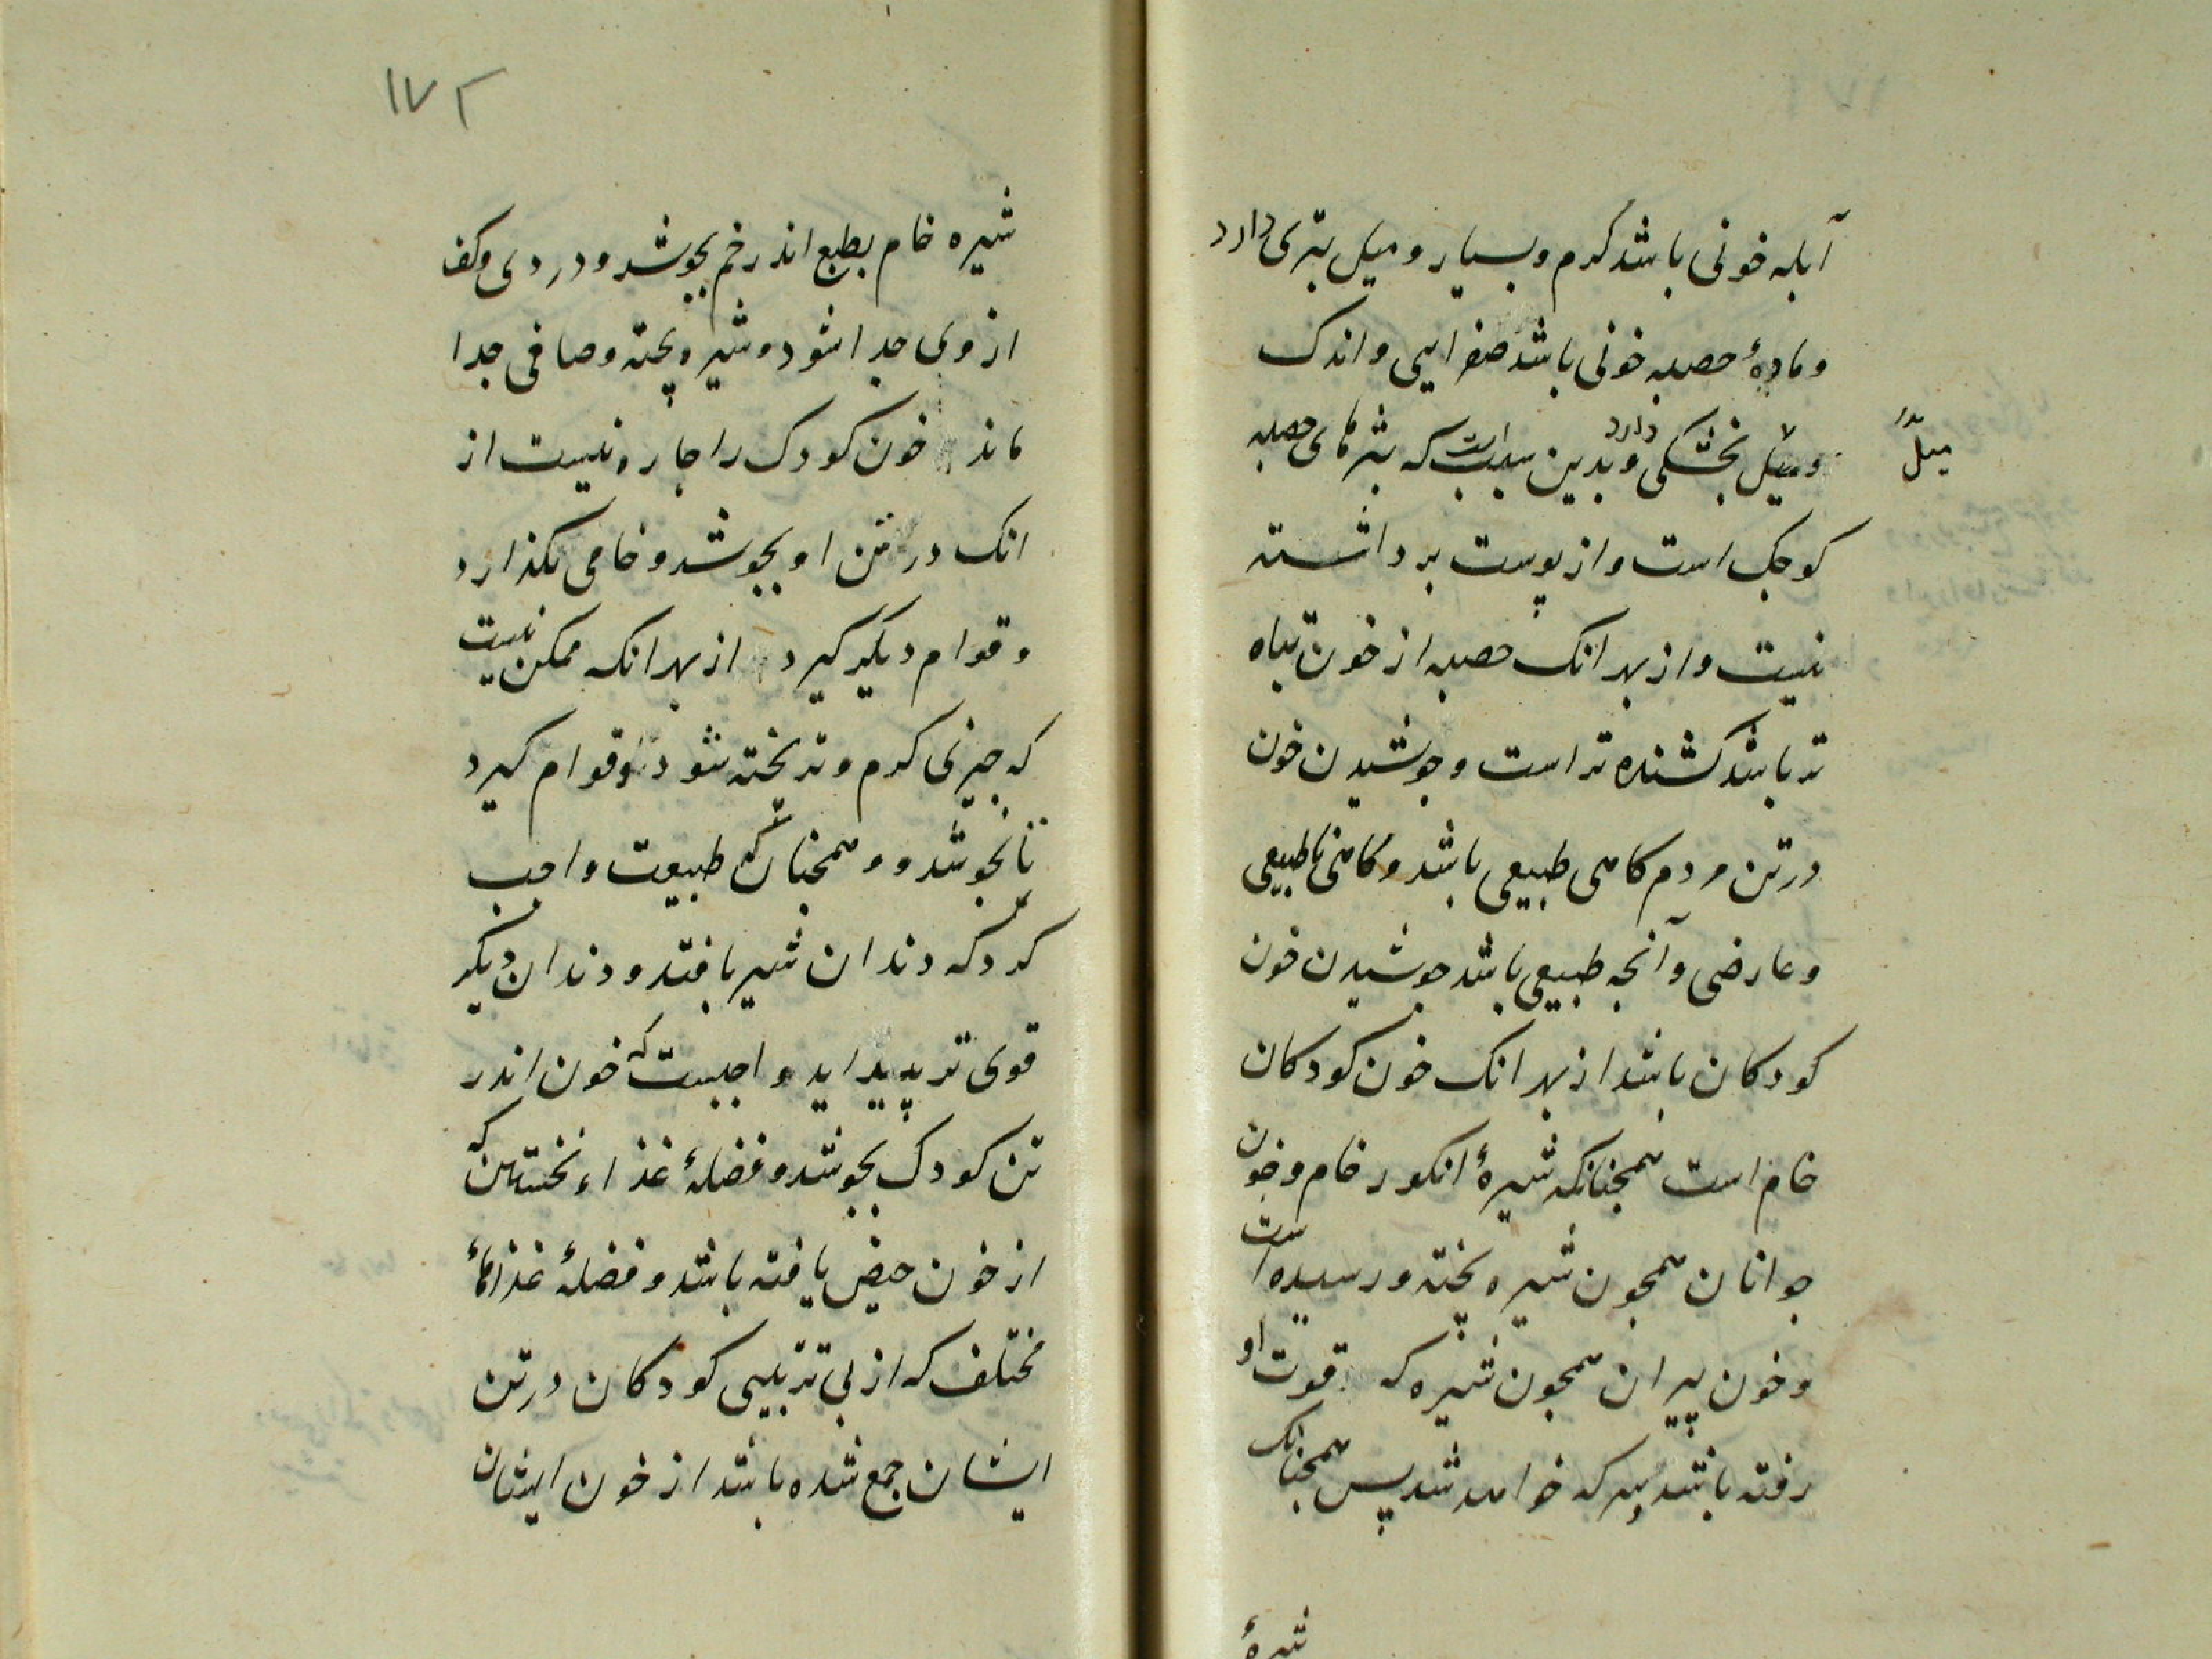 آبله خونی باشد کرم و بسیار و میل بتری دارد
و مادهٔ حصبه خونی باشد صفرایی و اندک
و میل بخشکی دارد و بدین سبب است که بثرهای حصبه
میل
کوجک است و از پوست برداشته
نیست و از بهر انک حصبه از خون تباه
تر باشد کشنده تر است و جوشیدن خون
در تن مردم کاهی طبیعی باشد و کاهی ناطبیعی
و عارضی و آنجه طبیعی باشد جوشیدن خون
کودکان باشد از بهر انک خون کودکان
خام است همجنانکه شیرهٔ انکور خام و خون
جوانان همجون شیره پخته و رسیده است
و خون پیران همجون شیره که قوت او
رفته باشد و سرکه خواهد شد پس همجنانک
شیرهٔ
۱۷۲
شیره خام بطبع اندر خم بجوشد و دردی و کف
از وی جدا شود و شیره پخته و صافی جدا
ماند خون کودک را جاره نیست از
انک در تن او بجوشد و خامی بکذارد
و قوام دیگر کیرد از بهر انکه ممکن نیست
که جیزی کرم و تر پخته شود و قوام کیرد
تا نجوشد و همجنان که طبیعت واجب
کرد که دندان شیر بافتد و دندان دیگر
قوی تر پدید اید واجبست که خون اندر
تن کودک بجوشد و فضلهٔ غذاء نخستین که
از خون حیض یافته باشد و فضلهٔ غذاهأ
مختلف که از بی ترتیبی کودکان در تن
ایشان جمع شده باشد از خون ایشان